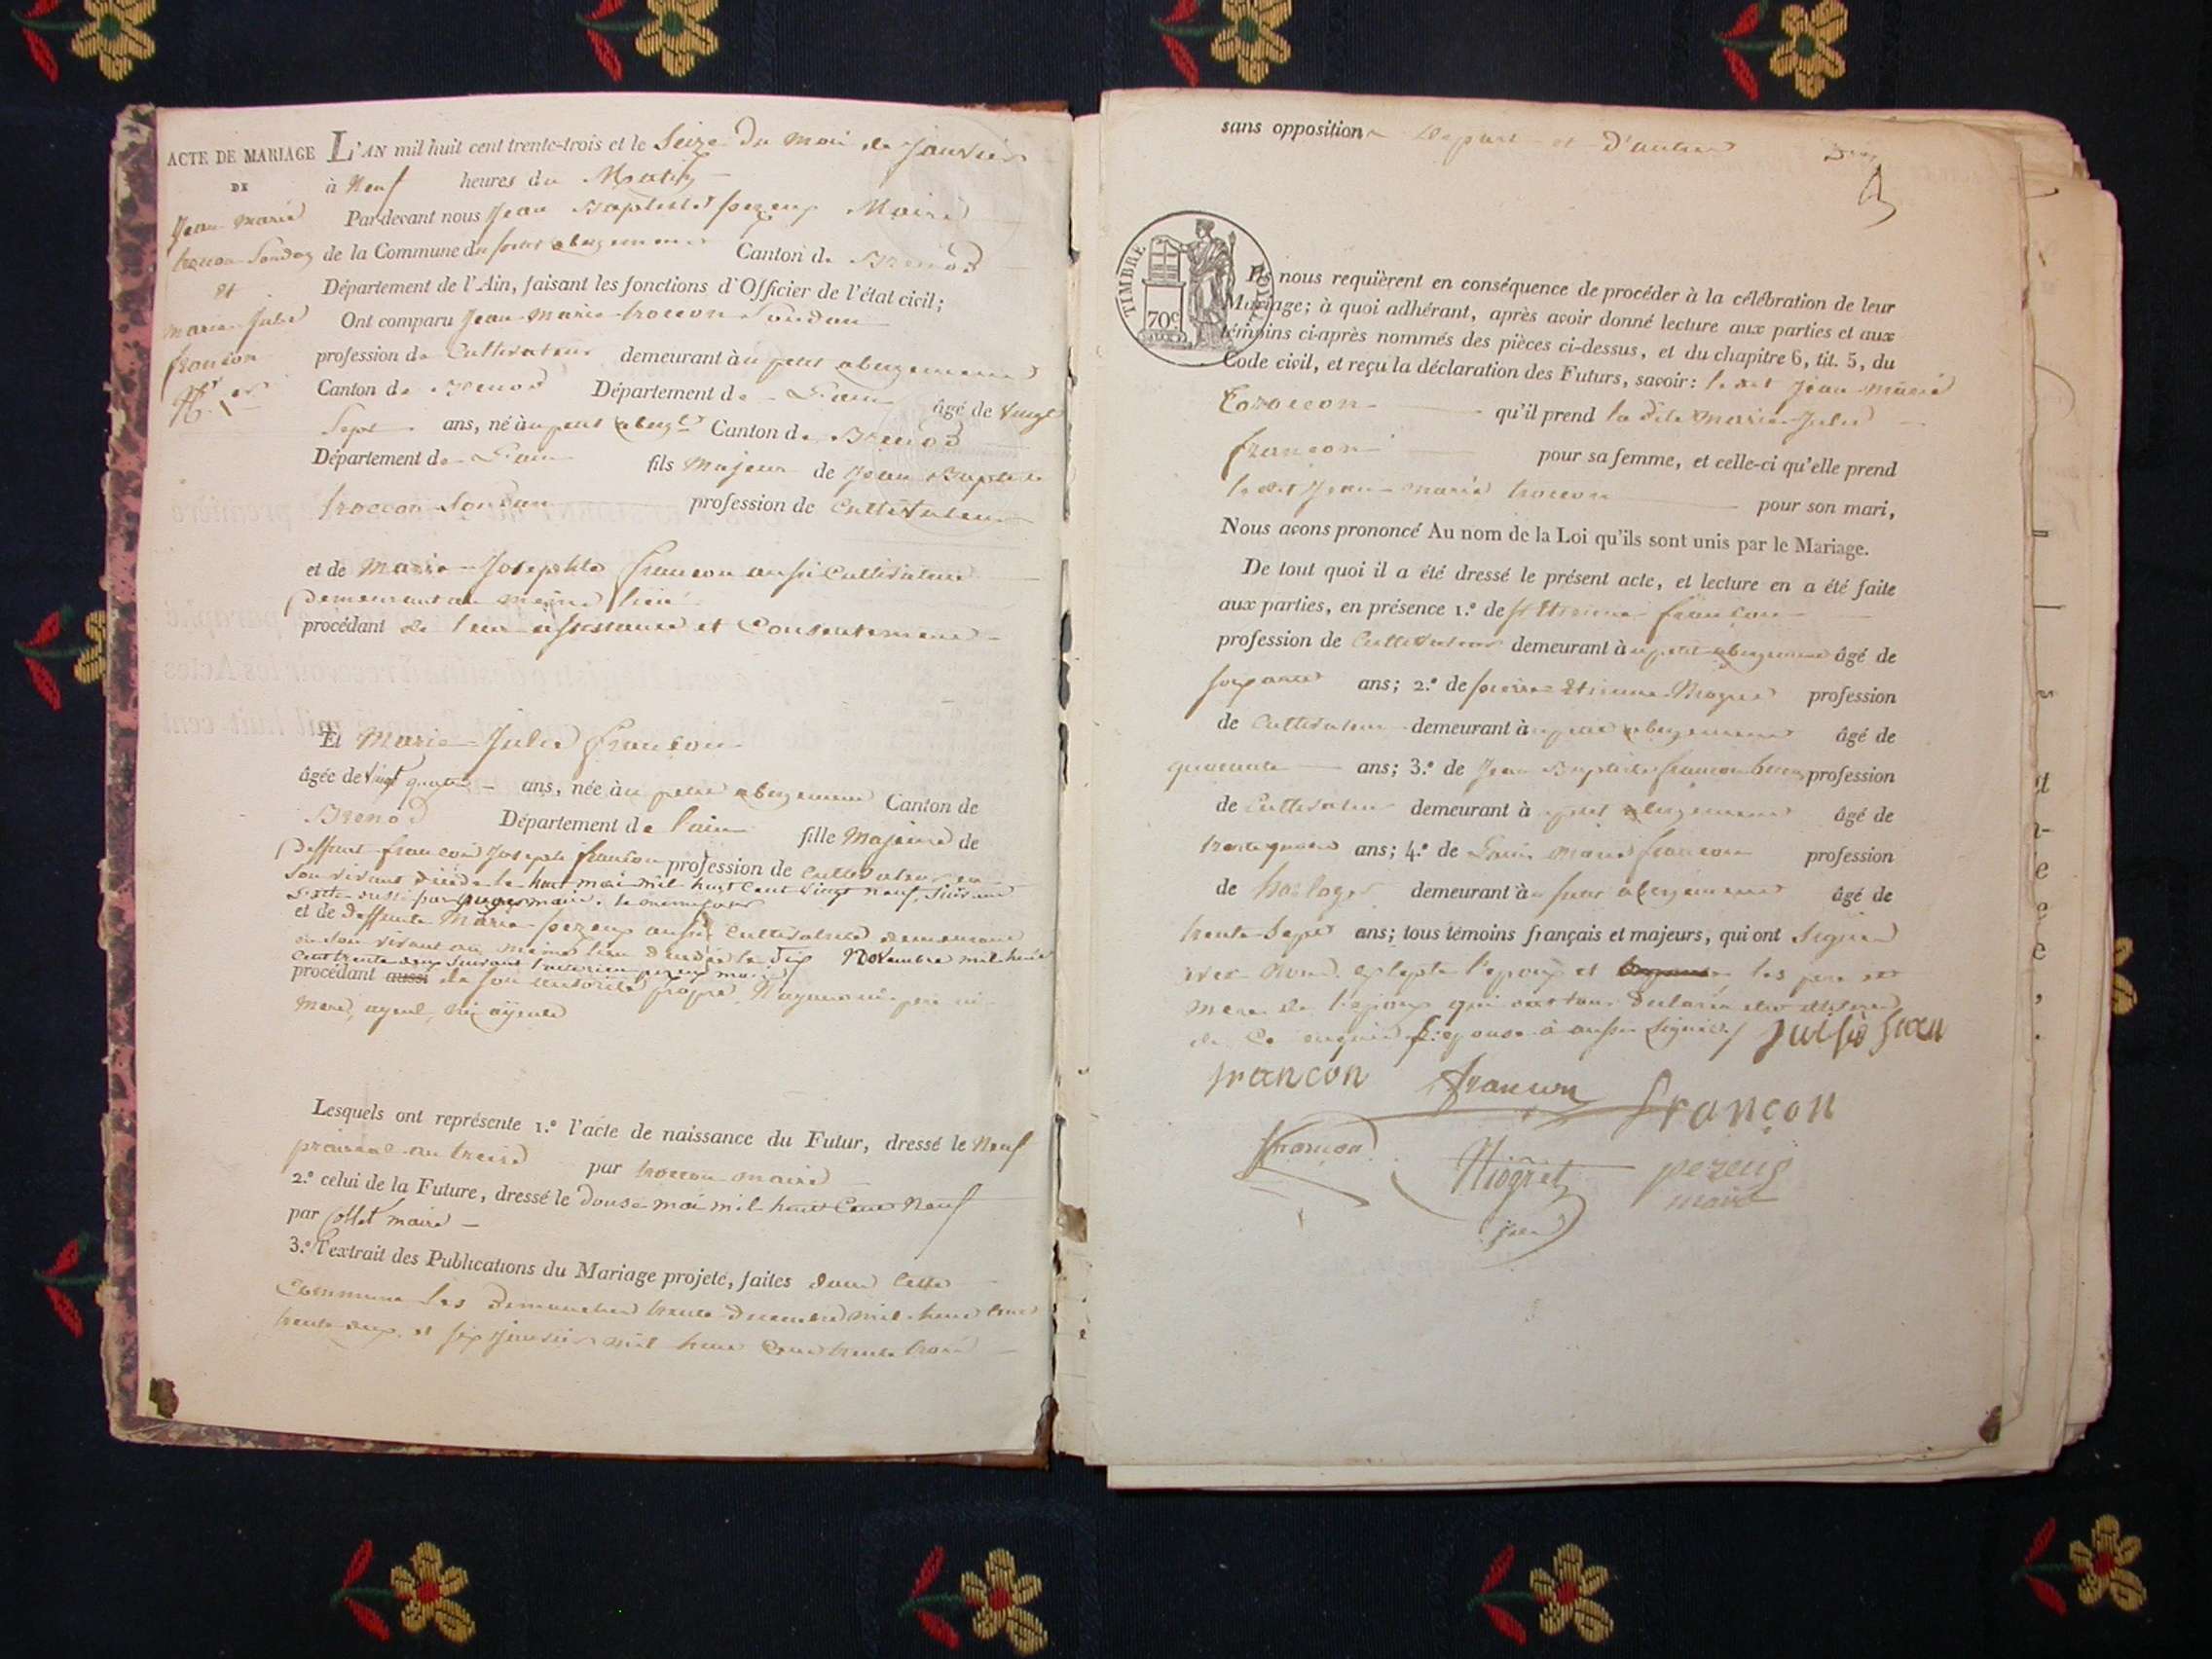 ACTE DE MARIAGE
DE
Jean Marie
trocon Sondaz
et
Marie Julie
françon
L'AN mil huit cent trente-trois et le Seize du mois de Janvier
à Neuf heures du Matin
Pardevant nous Jean Baptiste pezeux Maire
de la Commune du petit abergement Canton de Brenod
Département de l'Ain, faisant les fonctions d'Officier de l'état civil;
Ont comparu Jean Marie troccon Sondan
profession de Cultivateur demeurant à u petit abergement
Canton de Brenod Département de L'ain âgé de vingt
Sept ans, né à u petit abergt Canton de Brenod
Département de L'ain fils Majeur de Jean Baptiste
troccon Sondan profession de Cultivateur
et de Marie Josephte françon aussi Cultivatrice
Demeurant au même lieu
procédant de leur assistance et Consentement
Et Marie Julie françon
âgée de vingt quatre ans, née à u petit abergement Canton de
Brenod Département de l'ain fille Majeure de
Deffunt françois Joseph françon profession de Cultivateur en
Son vivant décédé le huit mai mil huit Cent vingt neuf, Suivant
et de deffunte Marie pezeux aussi Cultivatrice demeurant
en Son vivant au même lieu décédée le Dix Novembre mil huit
Cent trente deux Suivant pezeux maire
procédant aussi de son autorité propre, N'ayant ni père ni
mere, ayeul, Ni ayeule
Lesquels ont représenté 1.º l'acte de naissance du Futur, dressé le Neuf
prairial an treize par troccon maire
2.º celui de la Future, dressé le Douze mai mil huit Cent Neuf
par Collet maire
3.º l'extrait des Publications du Mariage projeté, faites dans Cette
Commune Les Dimanches trente Decembre mil huit Cent
trente deux et six Janvier mil huit Cent trente trois
sans opposition De part et D'autre
TIMBRE ROYAL
70c
Et nous requièrent en conséquence de procéder à la célébration de leur
Mariage; à quoi adhérant, après avoir donné lecture aux parties et aux
témoins ci-après nommés des pièces ci-dessus, et du chapitre 6, tit. 5, du
Code civil, et reçu la déclaration des Futurs, savoir: le dit Jean Marie
troccon qu'il prend la dite Marie Julie
françon pour sa femme, et celle-ci qu'elle prend
le dit Jean Marie troccon pour son mari,
Nous avons prononcé Au nom de la Loi qu'ils sont unis par le Mariage.
De tout quoi il a été dressé le présent acte, et lecture en a été faite
aux parties, en présence 1.º de Etienne françon
profession de Cultivateur demeurant à u petit abergement âgé de
soixante ans; 2.º de pierre Etienne Niogret profession
de Cultivateur demeurant à u petit abergement âgé de
quarante ans; 3.º de Jean Baptiste françon profession
de Cultivateur demeurant à u petit abergement âgé de
trente quatre ans; 4.º de Louis Marie françon profession
de horloger demeurant à u petit abergement âgé de
trente Sept ans; tous témoins français et majeurs, qui ont Signé
avec Nous, excepté l'epoux et les pere et
mere de l'epoux qui ont tous déclaré
de Ce enquis L'epouse à aussi signée
françon françon françon
françon Niogret pezeux
maire